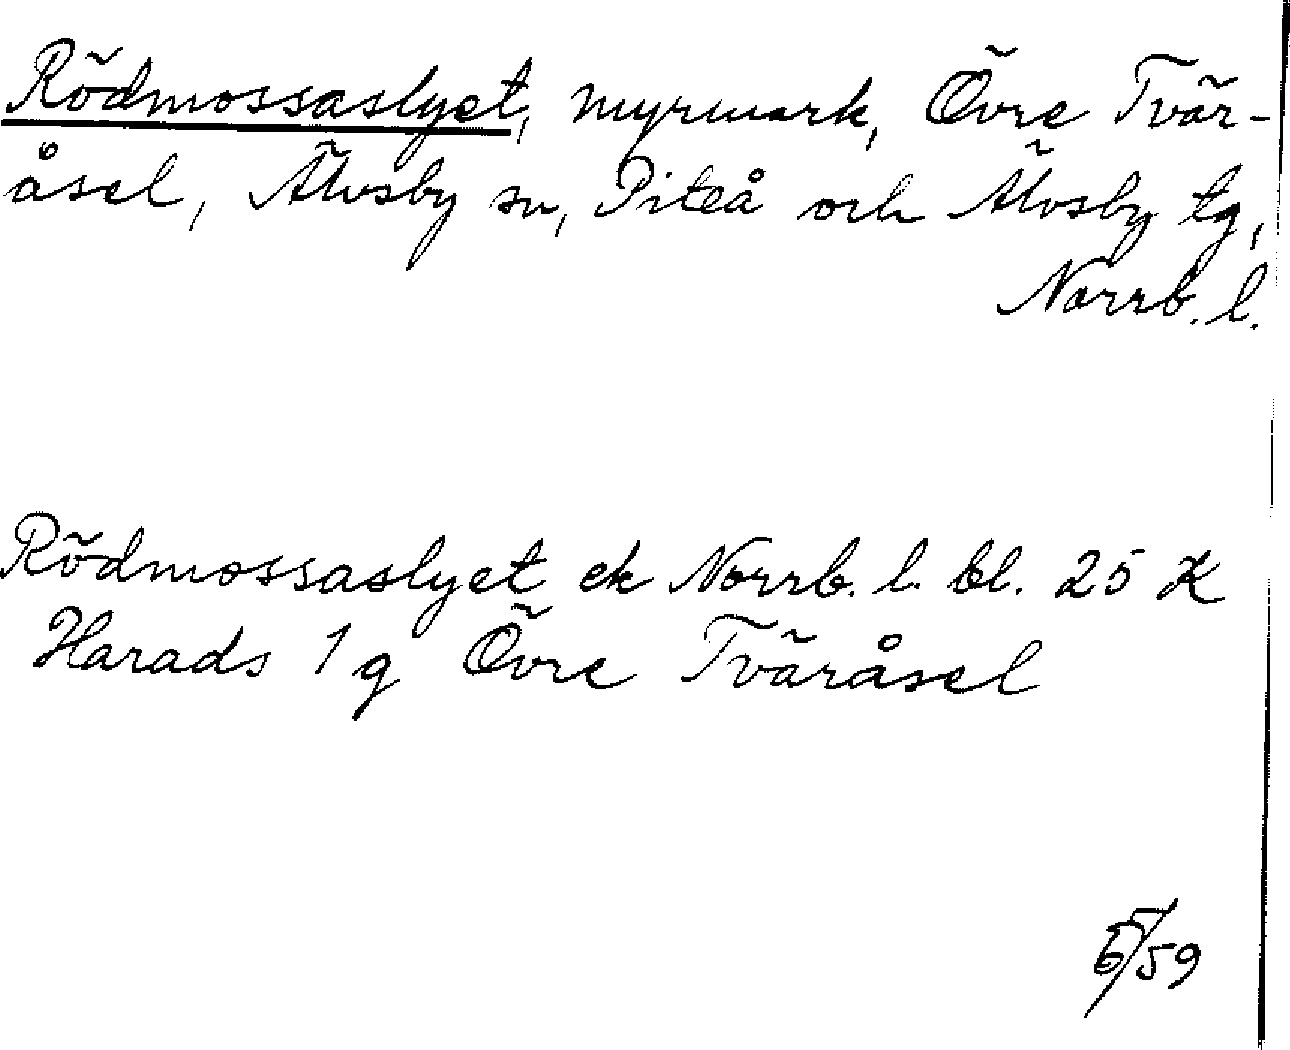 Rödmossaslyet, myrmark, Övre Tvär-
åsel, Älvsby sn, Piteå och Älvsby tg,
Norrb. l.
Rödmossaslyet ek Norrb. l. bl. 25 K
Harads 1 g Övre Tväråsel
5/59